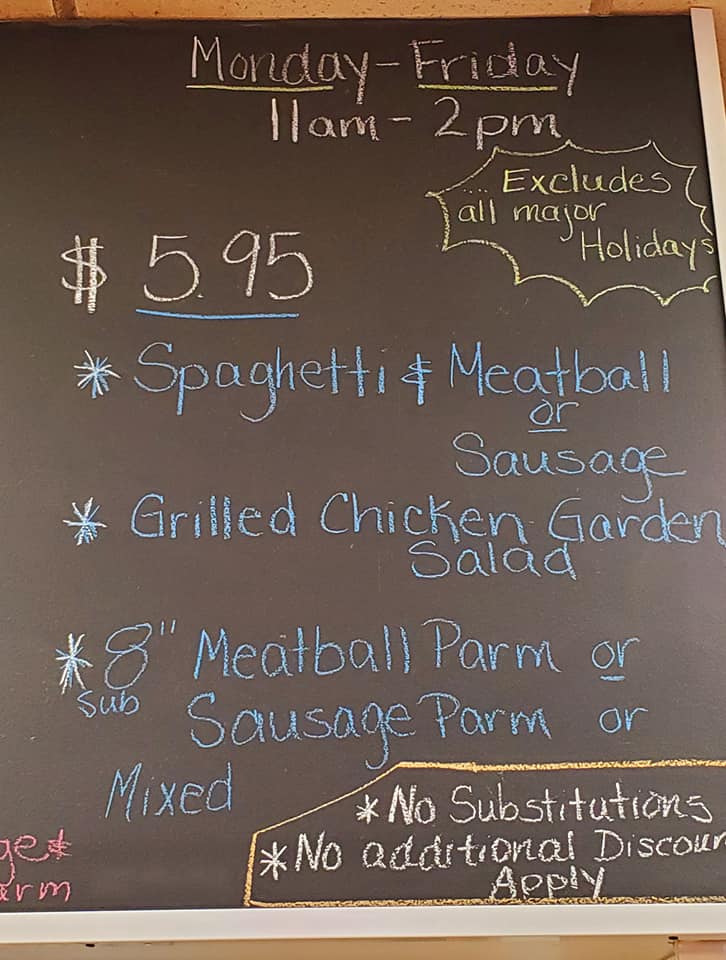 Monday - Friday
11am - 2pm
.... Excludes
all major
Holidays
$ 5.95
* Spaghetti & Meatball
or
Sausage
* Grilled Chicken Garden
Salad
* 8" Meatball Parm or
Sub Sausage Parm or
Mixed
* No Substitutions
* No additional Discoun
Apply